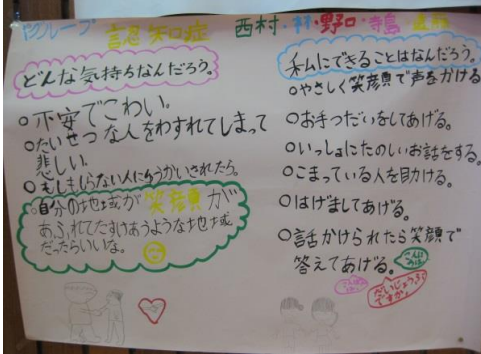 グループ 認知症 西村・林・野口・寺島
どんな気持ちなんだろう。
○不安でこわい。
○たいせつな人をわすれてしまって
悲しい。
○もしもしらない人にゆうかいされたら。
○自分の地域が笑顔が
あふれてたすけあうような地域
だったらいいな。
私にできることはなんだろう。
○やさしく笑顔で声をかける
○お手つだいをしてあげる。
○いっしょにたのしいお話をする。
○こまっている人を助ける。
○はげましてあげる。
○話かけられたら笑顔で
答えてあげる。
こんにちは
だいじょうぶ
ですか。